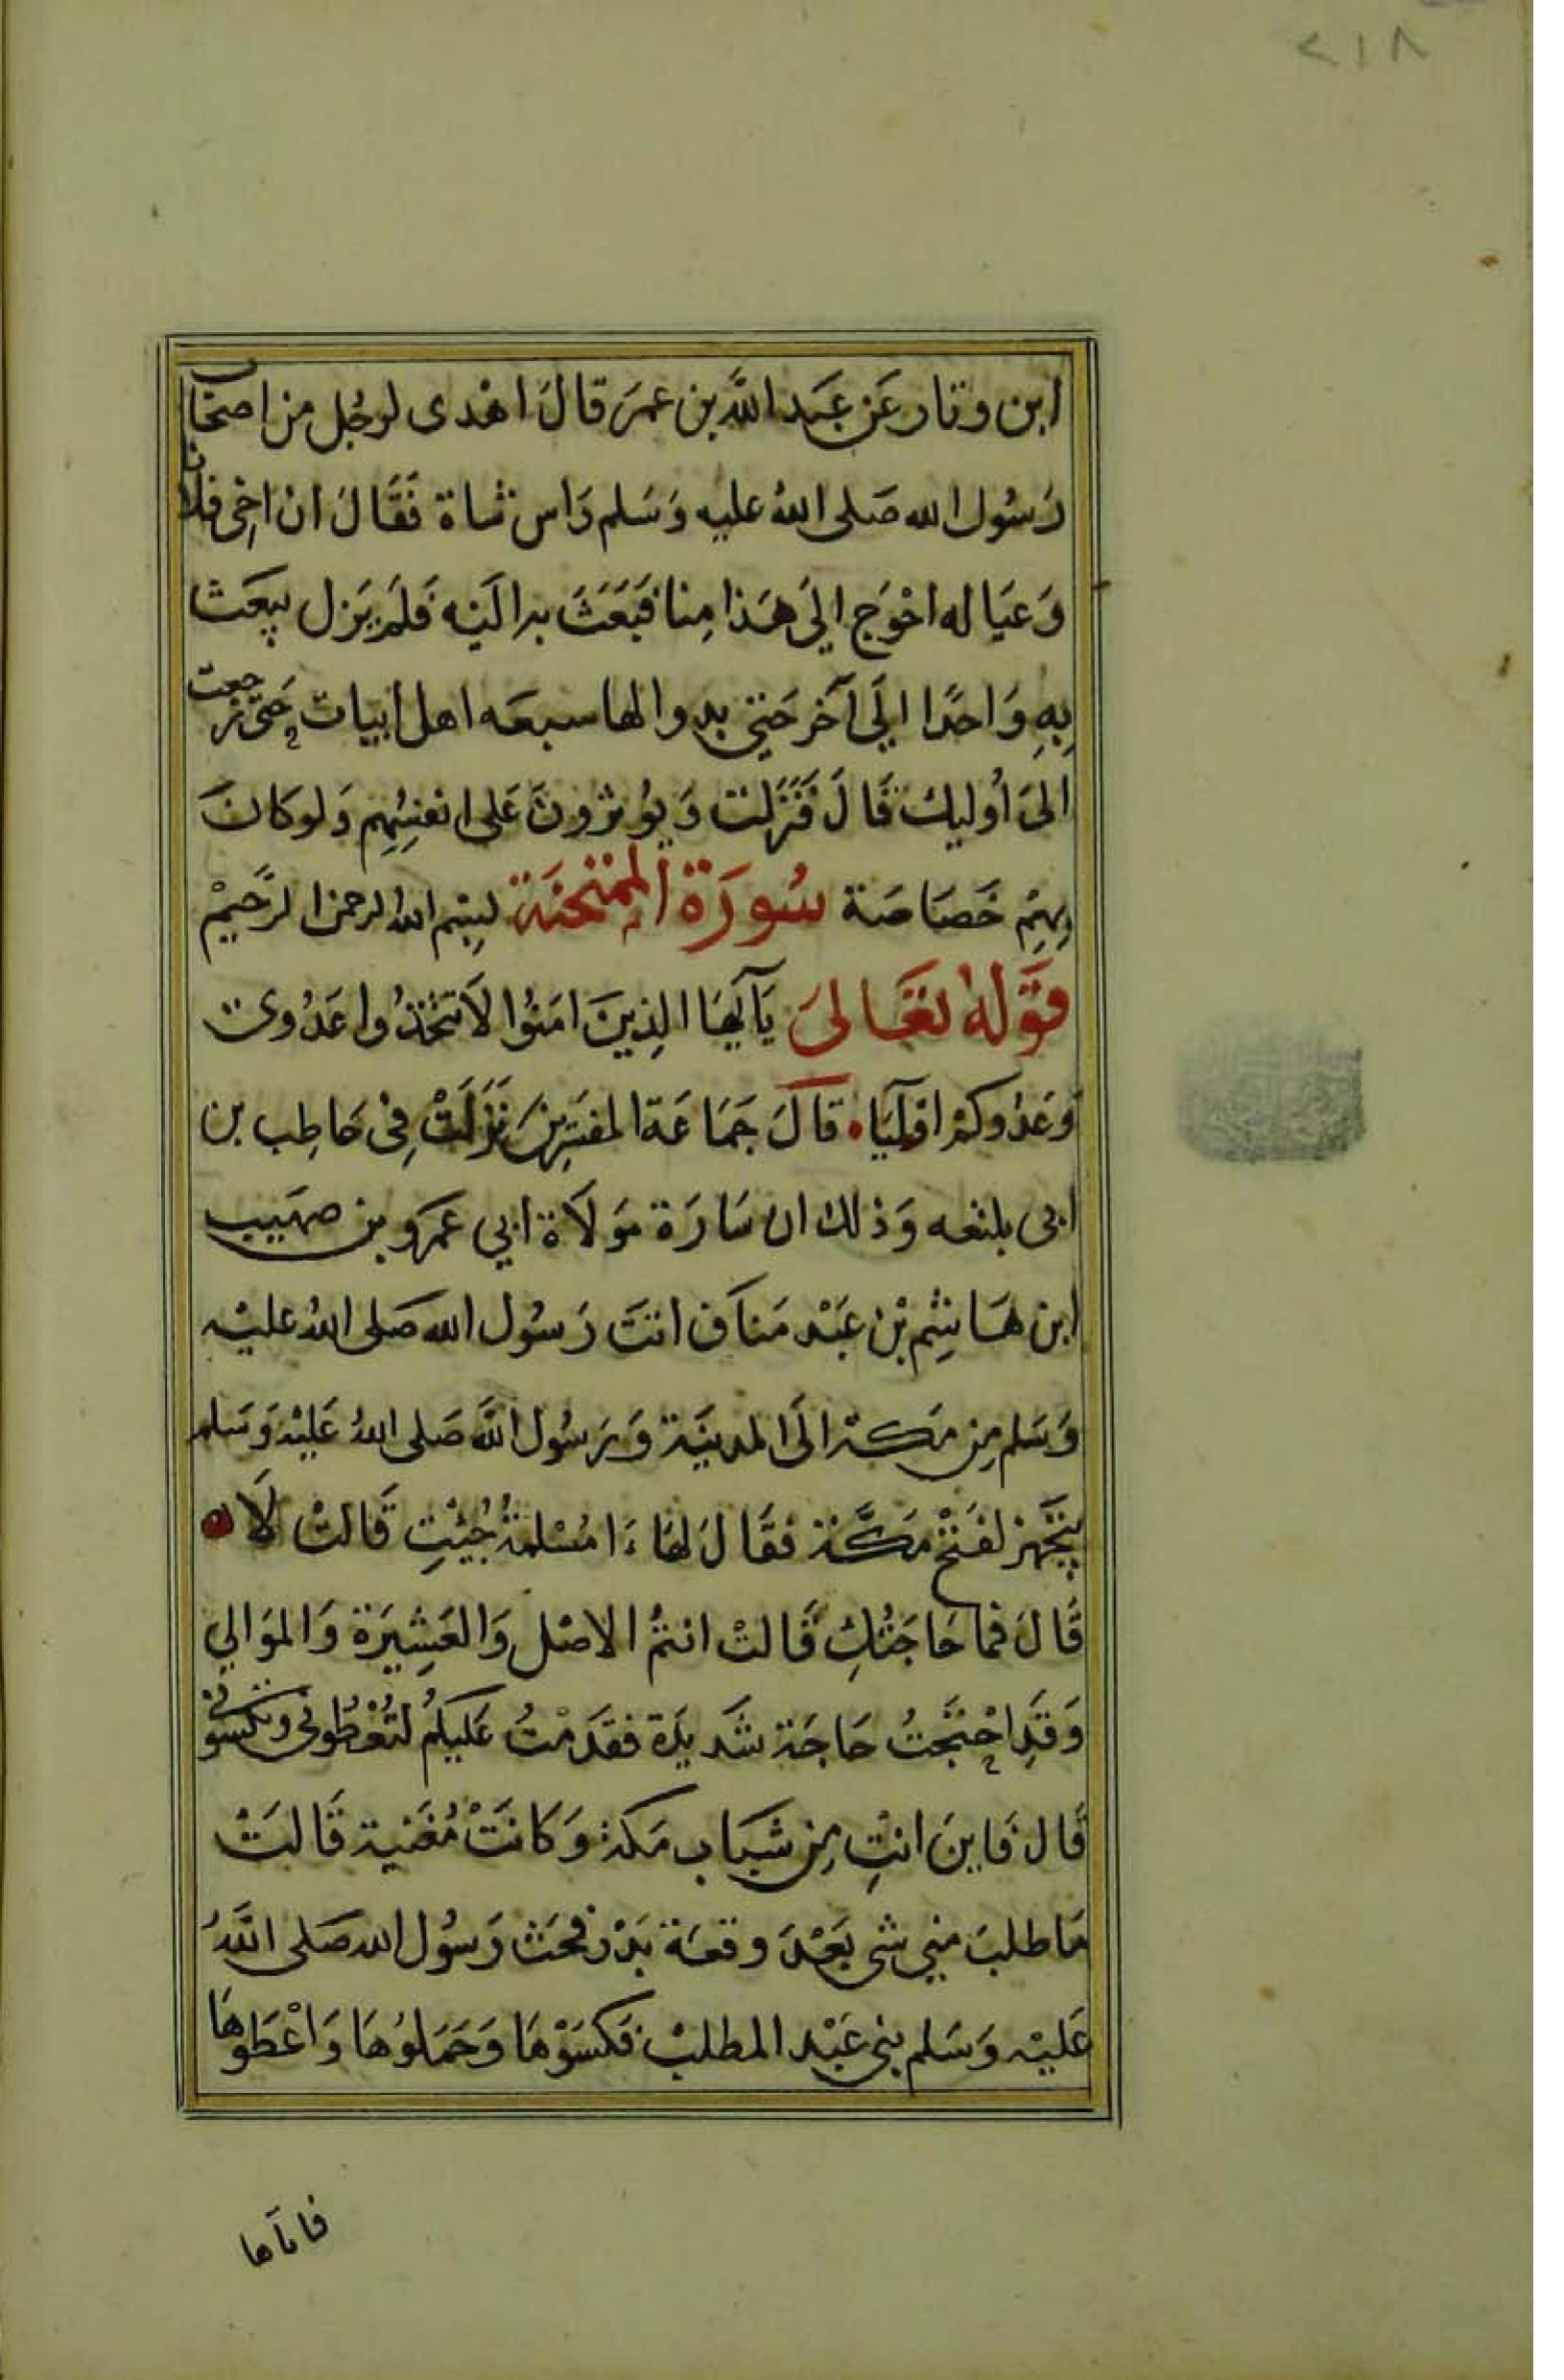 ٢١٨
ابن وثار عَن عَبَد اللَّه بن عمَر قالَ اهْدى لرجُل من اصحَاب
رَسُول الله صَلى اللهُ عليه وَسَلم رَاس شاة فَقَالَ ان اخِى فلانا
وَعيَاله احْوَج الىَ هَذا مِنا فبَعَثَ به اليَه فَلمَ يَزل يبعَث
بِهِ وَاحدًا الىَ آخر حَتىّ بدوالها سبعَه اهل ابيات حَتى رجعت
الىَ أوليك قَالَ فَنَزَلت وَيوُثرُونَ عَلى انفسِهِم وَلو كانَ
بِهِمْ خَصَاصَة سُورَة المِمْتحنَة لبِسْم اللهُ الرحمن الرَّحِيمْ
قوَلهُ تعَالىَ يَآ اَيّهَا الذِينَ امَنُوا لاَ تَتخذُوا عَدُوىّ
وَعدُوكمْ اوْليَآ • قالَ جَمَاعَة المفسّرِينَ نَزَلَتْ فِى حَاطِب بن
ابى بلتعه وَذلك ان سَارَة مَولاَة ابي عَمَرو بن صهَيب
ابن هَاشِم بْن عَبْد مَناف اتتَ رَسُول الله صَلى اللهُ عليْه
وَسَلم مِن مَكة الىَ المدينَة وَرَسُول اللَّه صَلى اللهُ عَليْه وَسَلم
يتجَهز لفَتْح مَكَّة فقَالَ لهَا ءَامُسْلمةُ جُئِتِ قَالتْ لَا
قَالَ فما حَاجَتُكِ قَالتْ انتمُ الاصْل وَالعَشِيَرَة وَالموَالي
وَقدَِ احْتجَتُ حَاجَة شَديدَة فقدَمْتُ عَليكمُ لتُعْطُونى وتكسُونى
قَال فَاينَ انتِ مِن شَبَاب مَكة وَكَانَتْ مُغَنية قَالتَْ
مَا طلبَ مني شى بَعْدَ وقعَة بَدْر فحَث رَسُول الله صَلى اللَّهُ
عَليْه وَسَلم بنى عَبْد المطلبْ فكسَوْهَا وَحَمَلوُهَا وَاعْطَوهَا
فاتاها